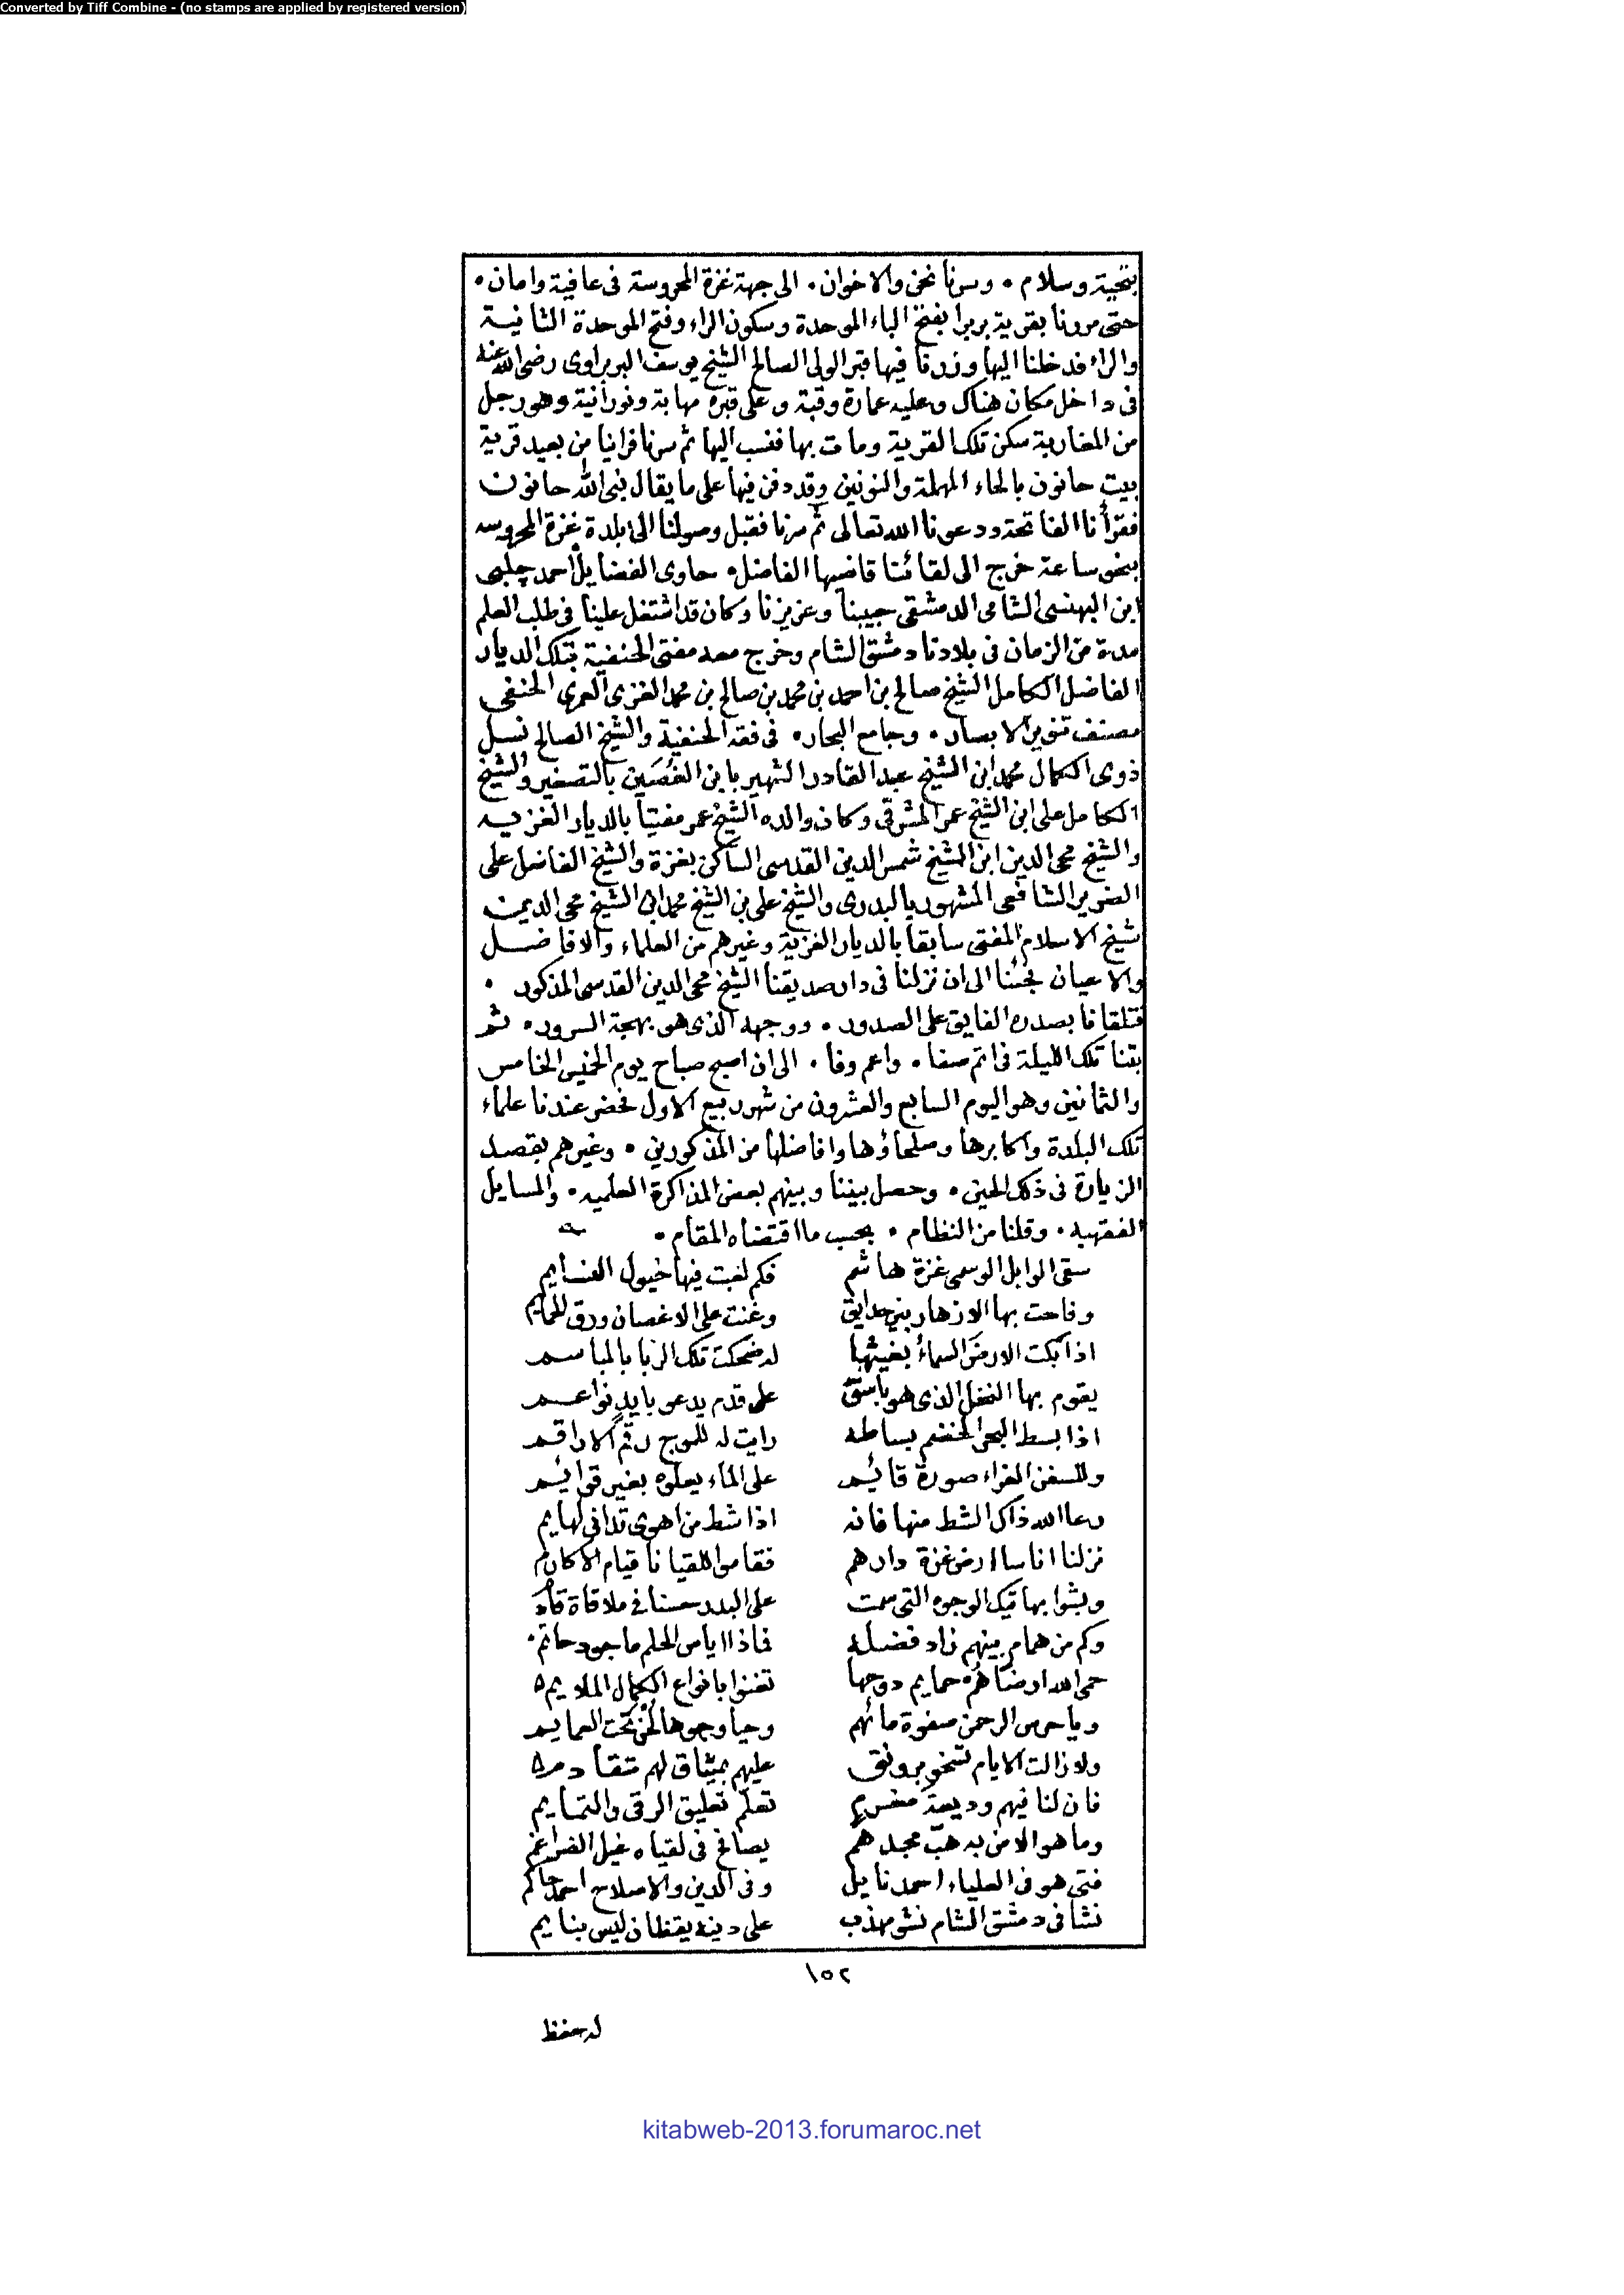 Converted by Tiff Combine - (no stamps are applied by registered version)
بتحية وسلام • وسرنا نحن والاخوان • الى جهة غزة المحروسة فى عافية وامان •
حتى مررنا بقرية بربرا بفتح الباء الموحدة وسكون الراء وفتح الموحدة الثانية
والراء فدخلنا اليها وزرنا فيها قبر الولى الصالح الشيخ يوسف البربراوى رضى الله عنه
فى داخل مكان هناك وعليه عمارة وقبة وعلى قبره مهابة ونورانية وهو رجل
من المغاربة سكن تلك القرية ومات بها فنسب اليها ثم سرنا فراينا من بعيد قرية
بيت حانون بالحاء المهملة والنونين وقد دفن فيها على ما يقال نبى الله حانون
فقرأنا الفاتحة ودعونا الله تعالى ثم سرنا فقبل وصولنا الى بلدة غزة المحروسه
بنحو ساعة خرج الى لقائنا قاضيها الفاضل • حاوى الفضايل احمد چلبى
ابن البهنسى الشامى الدمشقى حبيبنا وعزيزنا وكان قد اشتغل علينا فى طلب العلم
مدة من الزمان فى بلادنا دمشق الشام وخرج معه مفتى الحنفية بتلك الديار
الفاضل الكامل الشيخ صالح بن احمد بن محمد بن صالح بن محمد الغزى العمرى الحنفى
مصنف تنوير الابصار • وجامع البحار • فى فقه الحنفية والشيخ الصالح نسل
ذوى الكمال محمد ابن الشيخ عبد القادر الشهير بابن الغصين بالتصغير والشيخ
الكامل على ابن الشيخ عمر المشرقى وكان والده الشيخ عمر مفتيا بالديار الغزيه
والشيخ محى الدين ابن الشيخ شمس الدين القدسى الساكن بغزة والشيخ الفاضل على
الضرير الشافعى المشهور بالبدرى والشيخ على بن الشيخ محمد ابن الشيخ محى الدين
شيخ الاسلام المفتى سابقا بالديار الغزية وغيرهم من العلماء والافاضل
والاعيان فجئنا الى ان نزلنا فى دار صديقنا الشيخ محى الدين القدسى المذكور •
فتلقانا بصدره الفايق على الصدور • ووجهه الذى هو بهجة السرور • ثم
بتنا تلك الليلة فى اتم صفا • واعم وفا • الى ان اصبح صباح يوم الخميس الخامس
والثمانين وهو اليوم السابع والعشرون من شهر ربيع الاول فحضر عندنا علماء
تلك البلدة واكابرها وصلحاؤها وافاضلها من المذكورين • وغيرهم بقصد
الزيارة فى ذلك الحين • وحصل بيننا وبينهم بعض المذاكرة العلميه • والمسايل
الفقهيه • وقلنا من النظام • بحسب ما اقتضاه المقام •
سقى الوابل الوسمى غزة هاشم فكم لعبت فيها خيول النسايم
وفاحت بها الازهار بين حدايق وغنت على الاغصان ورق الحمايم
اذا بكت الارض السماء بغيثها له ضحكت تلك الربا بالمباسم
يقوم بها النخل الذى هو باسق على قدم يدعو بايد نواعم
اذا بسط البحر الخضم بساطه رايت له للموج رقم الاراقم
وللسفن الغراء صورة قائم على الماء يعلوه بغير قوائم
رعا الله ذاك الشط منها فانه اذا شط من اهوى تدانى لهايم
نزلنا اناسا ارض غزة دارهم فقاموا للقيانا قيام الاكارم
وبشوا بهاتيك الوجوه التى سمت على البدر حسنا فى ملاقاة قادم
وكم من همام بينهم زاد فضله فاذا اياس الحلم ما جود حاتم •
حمى الله ارضا هم حمايم دوحها تغنوا بانواع الكمال الملايم
ويا حرس الرحمن صفوة مائهم وحيا وجوها لحن تحت العمايم
ولا زالت الايام تنحو برونق عليهم بميثاق لهم متقادم
فان لنا فيهم وديعة مغرم تعلم تعليق الرقى والتمايم
وما هو الا من به هب مجدهم يصافح فى لقياه غيل الضراغم
فتى هو فى العلياء احمد نايل وفى الدين والاصلاح احمد حاكم
نشا فى دمشق الشام نشو مهذب على دينه يقظان ليس بنايم
١٥٢
له حفظ
kitabweb-2013.forumaroc.net